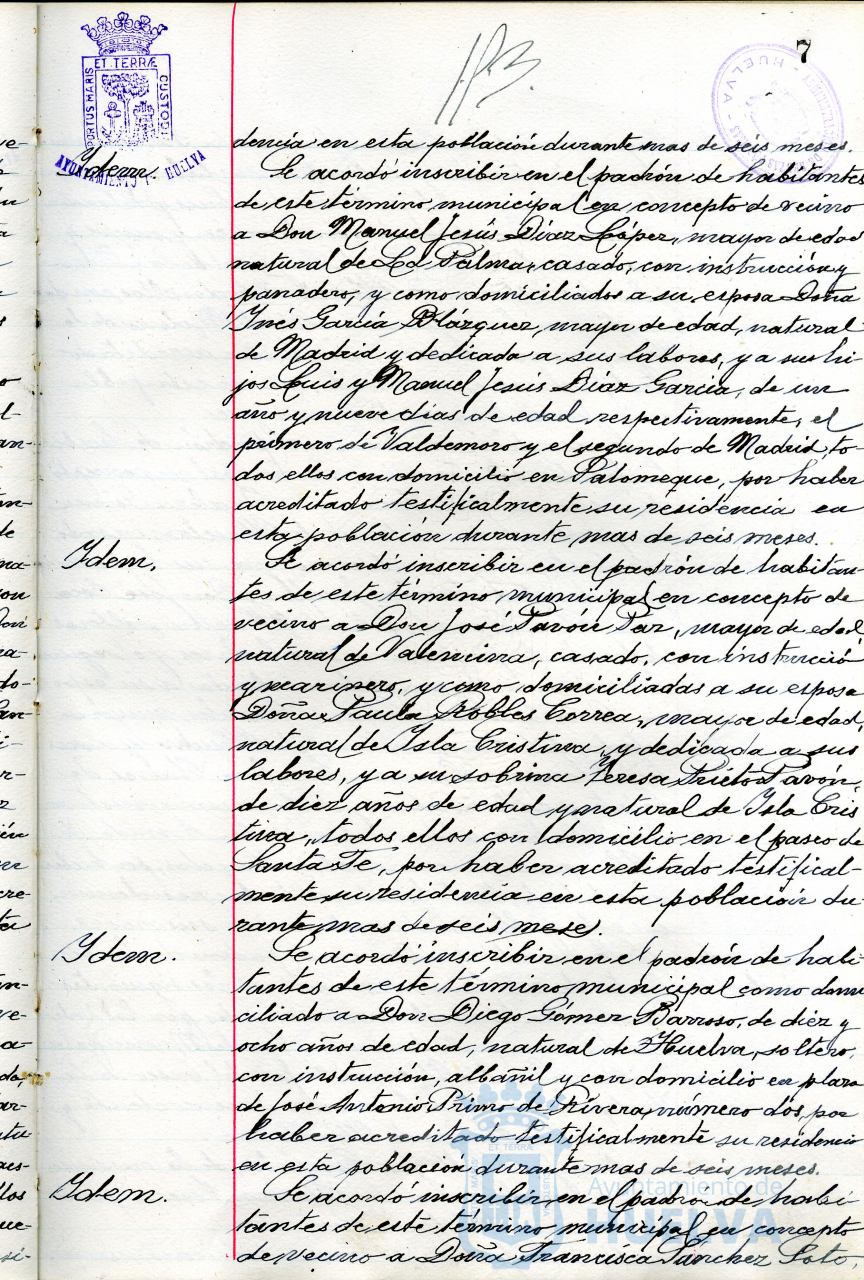 7
ET TERRÆ
PORTUS MARIS
CUSTODI
AYUNTAMIENTO DE HUELVA
HUELVA
dencia en esta población durante mas de seis meses.
Idem.
Se acordó inscribir en el padrón de habitantes
de este término municipal en concepto de vecino
a Don Manuel Jesús Díaz López, mayor de edad
natural de La Palma, casado, con instrucción y
panadero, y como domiciliados a su esposa Doña
Inés García Blázquez, mayor de edad, natural
de Madrid y dedicada a sus labores, y a sus hi-
jos Luis y Manuel Jesús Díaz García, de un
año y nueve días de edad respectivamente, el
primero de Valdemoro y el segundo de Madrid, to-
dos ellos con domicilio en Palomeque, por haber
acreditado testificalmente su residencia en
esta población durante mas de seis meses.
Idem.
Se acordó inscribir en el padrón de habitan-
tes de este término municipal en concepto de
vecino a Don José Pavón Paz, mayor de edad
natural de Valencina, casado, con instrucción
y marinero, y como domiciliadas a su esposa
Doña Paula Robles Correa, mayor de edad,
natural de Isla Cristina, y dedicada a sus
labores, y a su sobrina Teresa Prieto Pavón,
de diez años de edad y natural de Isla Cris
tina, todos ellos con domicilio en el paseo de
Santa Fe, por haber acreditado testifical-
mente su residencia en esta población du-
rante mas de seis mese.
Idem.
Se acordó inscribir en el padrón de habi-
tantes de este término municipal como domi
ciliado a Don Diego Gómez Barroso, de diez y
ocho años de edad, natural de Huelva, soltero,
con instrucción, albañil y con domicilio en plaza
de José Antonio Primo de Rivera, número dos, por
haber acreditado testificalmente su residencia
en esta población durante mas de seis meses.
Idem.
Se acordó inscribir en el padrón de habi-
tantes de este término municipal en concepto
de vecino a Doña Francisca Sánchez Soto,
Ayuntamiento de
HUELVA